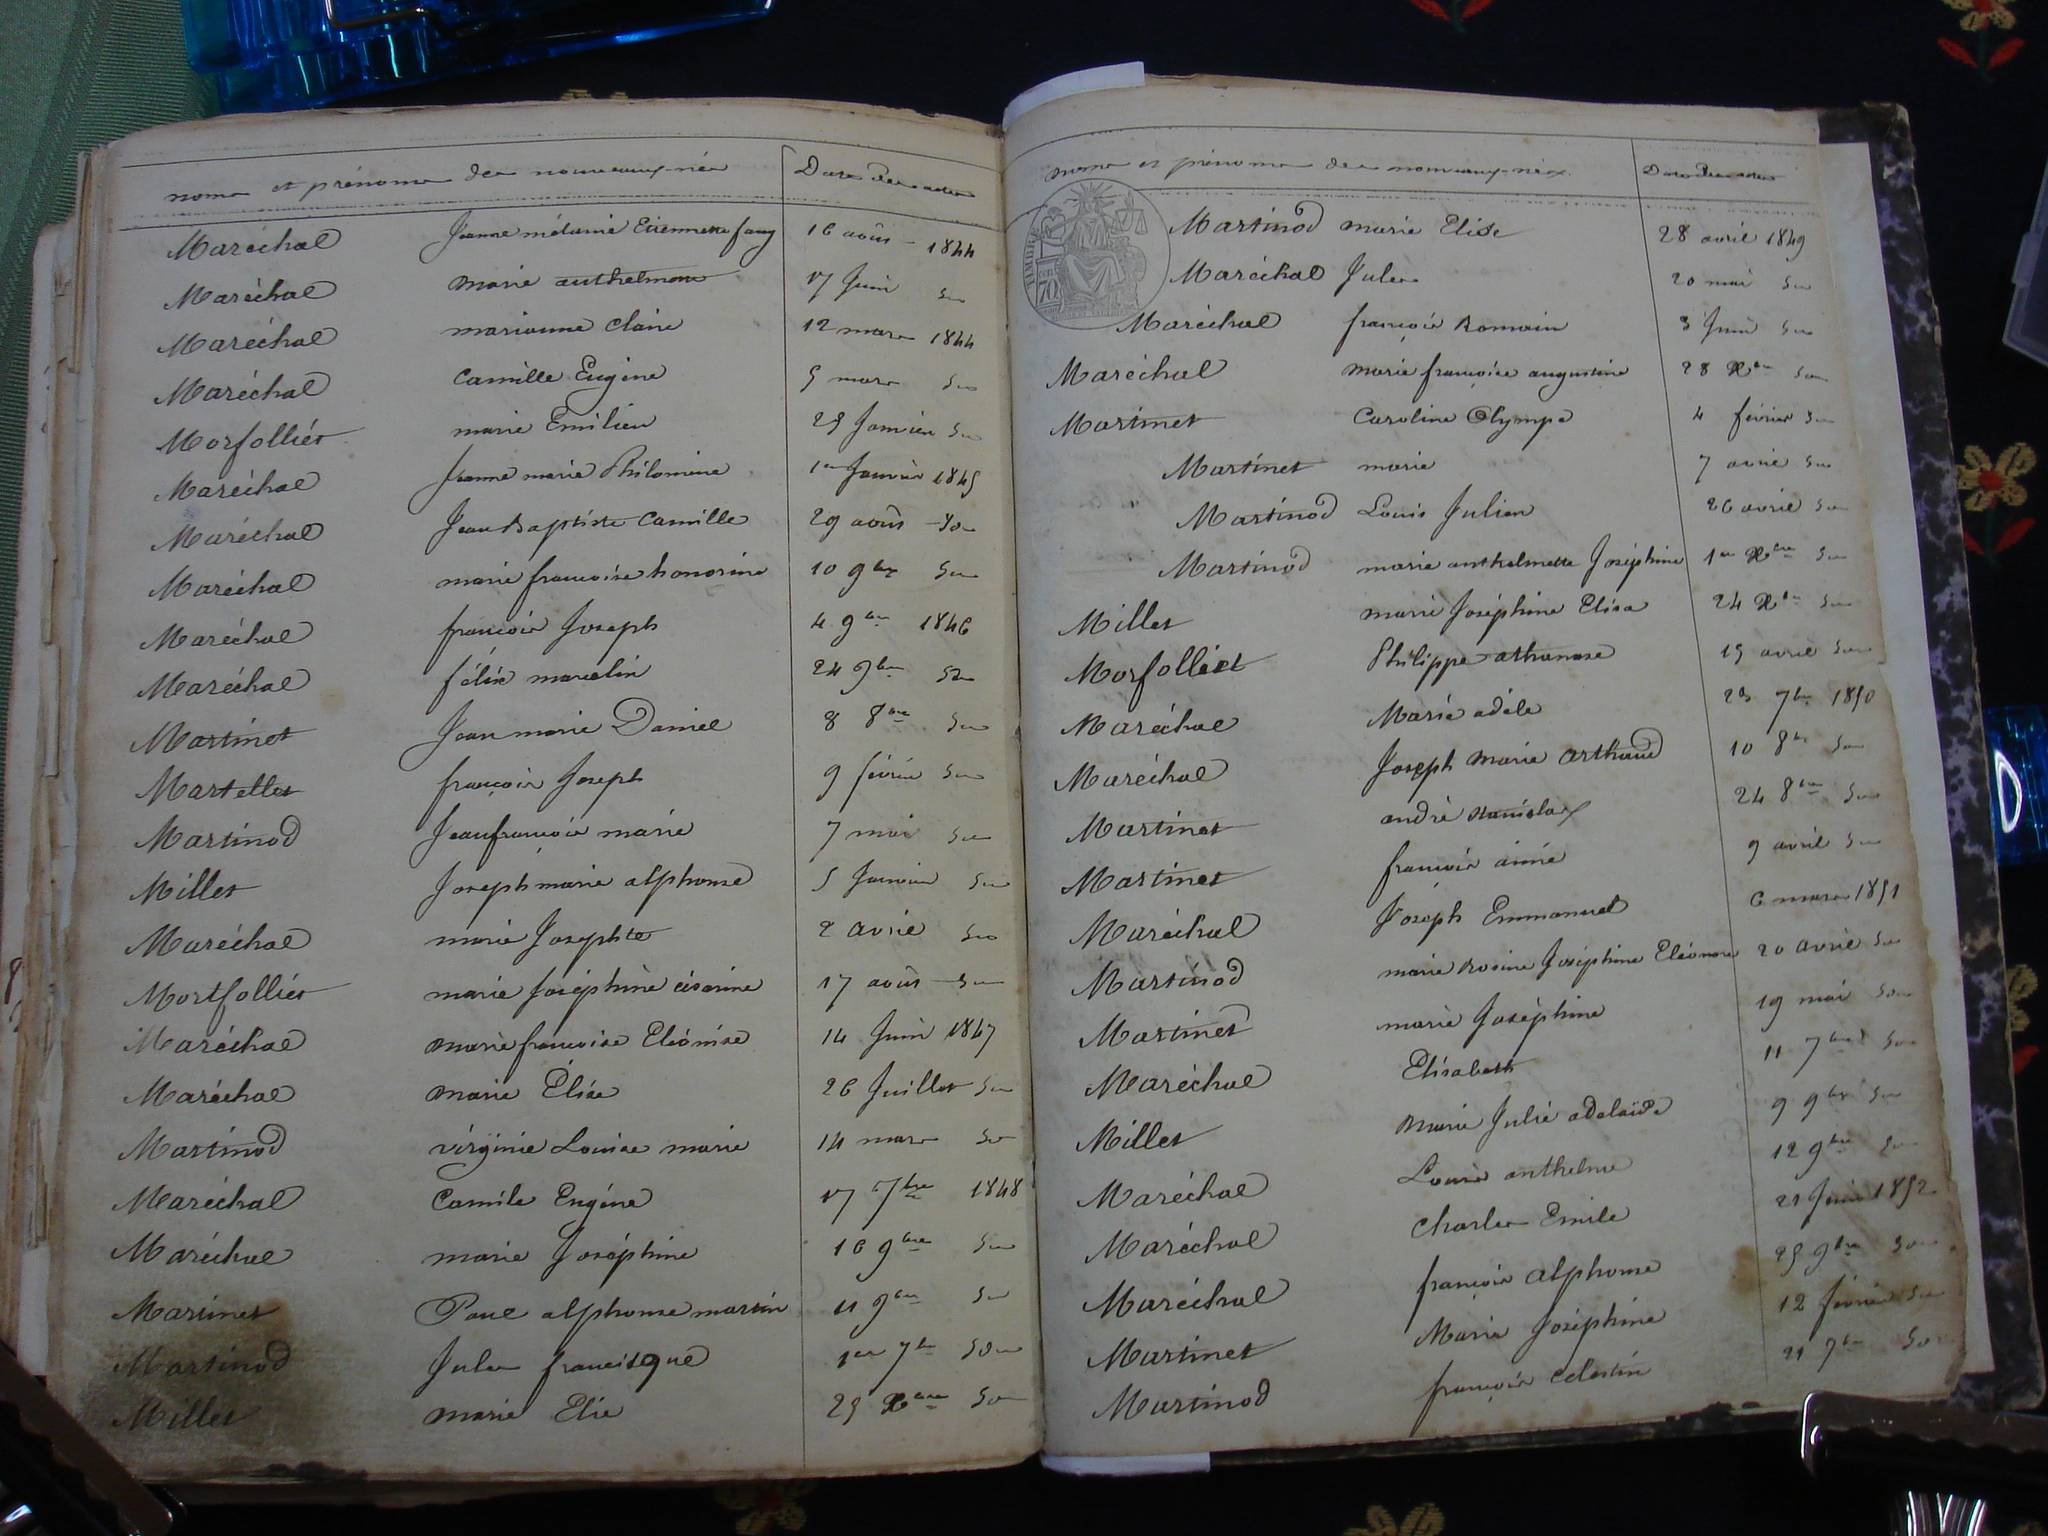 noms et prénoms des nouveaux-nés Dates des actes
Maréchal Jeanne mélanie Etiennette fany 16 août 1844
Maréchal marie anthelmine 17 Juin do
Maréchal marianne Claire 12 mars 1844
Maréchal Camille Eugène 5 mars do
Morfolliet marie Emilien 25 Janvier do
Maréchal Jeanne marie Philomène 1er Janvier 1845
Maréchal Jean Baptiste Camille 29 août do
Maréchal marie françoise honorine 10 9bre do
Maréchal françois Joseph 4 9bre 1846
Maréchal félix marcelin 24 9bre do
Martinet Jean marie Daniel 8 8bre do
Martellet françois Joseph 9 février do
Martinod Jean françois marie 7 mai do
Millet Joseph marie alphonse 5 Janvier do
Maréchal marie Josephte 2 avril do
Mortfolliet marie Joséphine césarine 17 août do
Maréchal marie françoise Eléonise 14 Juin 1847
Maréchal marie Élise 26 Juillet do
Martinod virginie Louise marie 14 mars do
Maréchal Camile Eugène 17 7bre 1848
Maréchal marie Joséphine 16 9bre do
Martinet Paul alphonse martin 11 9bre do
Martinod Jules francisque 1er 7bre do
Millet marie Elie 25 Xbre do
noms et prénoms des nouveaux-nés. Dates des actes
TIMBRE
70
Martinod marie Elise 28 avril 1849
Maréchal Jules 20 mai do
Maréchal françois Romain 3 Juin do
Maréchal marie françoise augustine 28 Xbre do
Martinet Caroline Olympe 4 février do
Martinet marie 7 avril do
Martinod Louis Julien 26 avril do
Martinod marie anthelmette Joséphine 1er Xbre do
Millet marie Joséphine Elisa 24 Xbre do
Morfolliet Philippe athanase 15 avril do
Maréchal Marie adèle 23 7bre 1850
Maréchal Joseph marie arthaud 10 8bre do
Martinet andré stanislas 24 8bre do
Martinet françois aimé 9 avril do
Maréchal Joseph Emmanuel 6 mars 1851
Martinod marie Rosine Joséphine Eléonore 20 avril do
Martinet marie Joséphine 19 mai do
Maréchal Elisabeth 11 7bre do
Millet Marie Julie adelaïde 9 9bre do
Maréchal Louis anthelme 12 9bre do
Maréchal Charles Emile 21 Juin 1852
Maréchal françois alphonse 25 9bre do
Martinet Marie Joséphine 12 février do
Martinod françois Célestin 21 7bre do